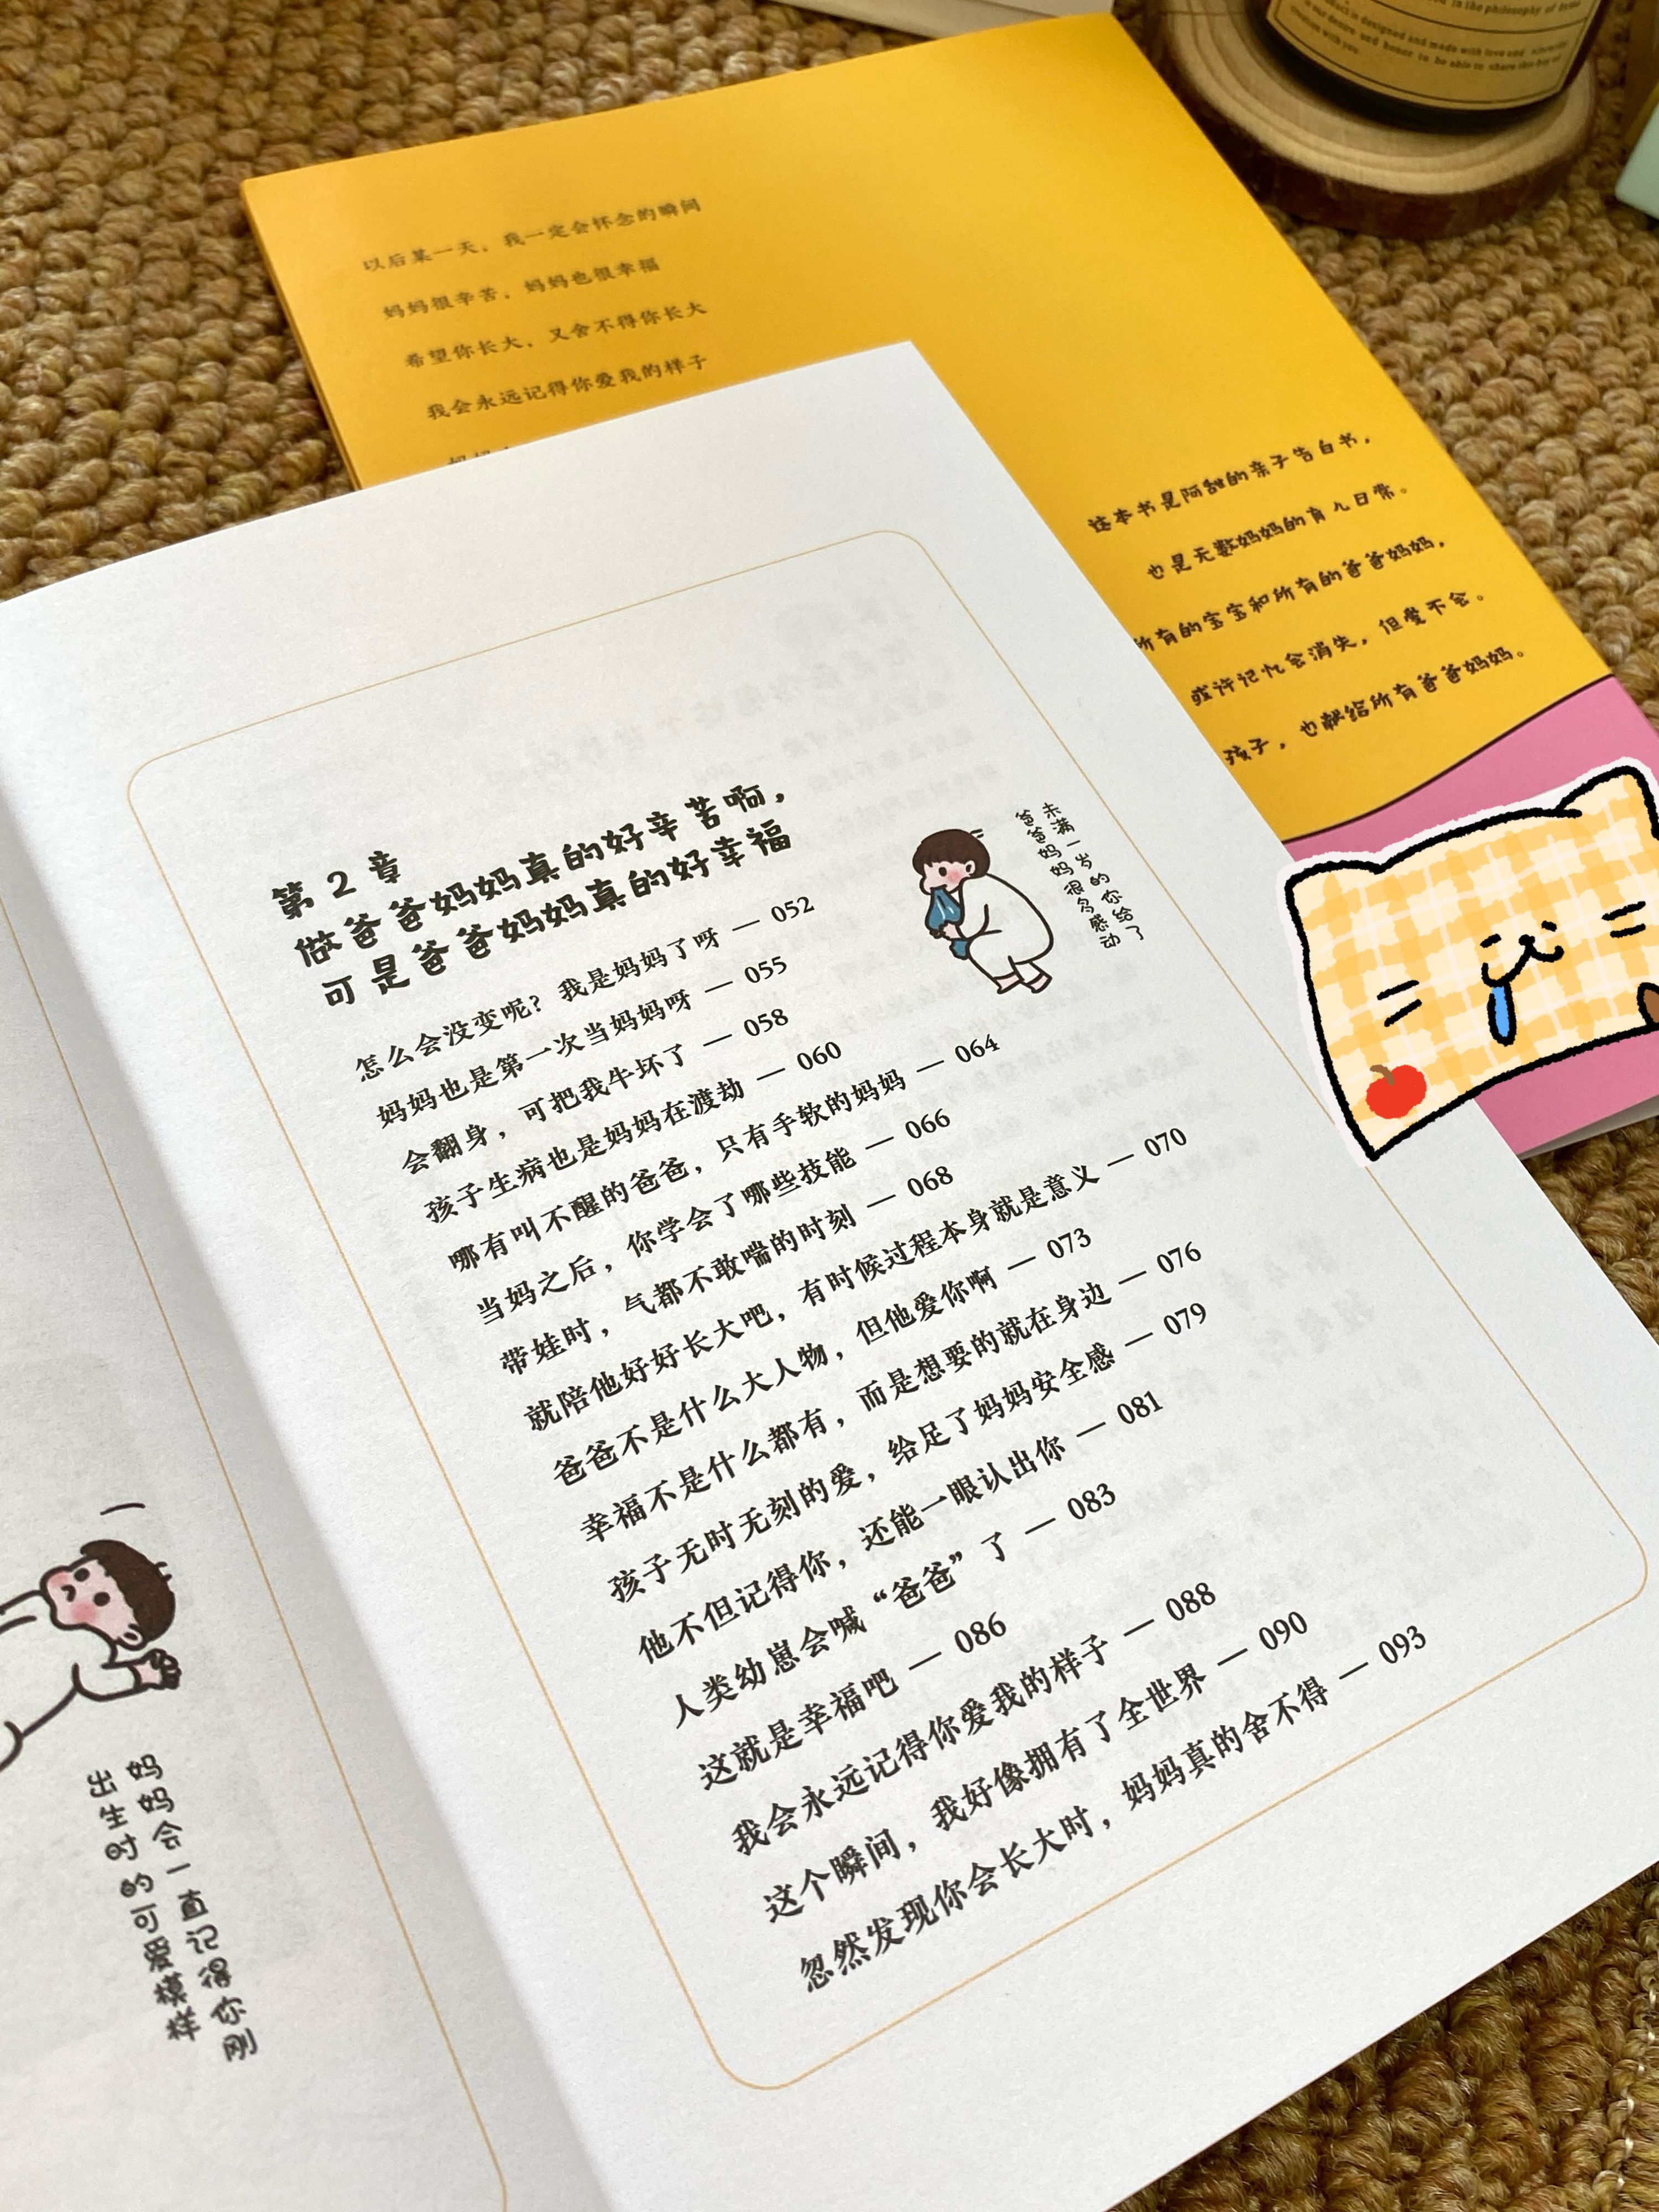 以后某一天，我一定会怀念的瞬间
妈妈很辛苦，妈妈也很幸福
希望你长大，又舍不得你长大
我会永远记得你爱我的样子
这本书是阿甜的亲子告白书，
也是无数妈妈的育儿日常。
所有的宝宝和所有的爸爸妈妈，
或许记忆会消失，但爱不会。
孩子，也献给所有爸爸妈妈。
第2章
做爸爸妈妈真的好辛苦啊，
可是爸爸妈妈真的好幸福
未满一岁的你给了
爸爸妈妈很多感动
怎么会没变呢？我是妈妈了呀 — 052
妈妈也是第一次当妈妈呀 — 055
会翻身，可把我牛坏了 — 058
孩子生病也是妈妈在渡劫 — 060
哪有叫不醒的爸爸，只有手软的妈妈 — 064
当妈之后，你学会了哪些技能 — 066
带娃时，气都不敢喘的时刻 — 068
就陪他好好长大吧，有时候过程本身就是意义 — 070
爸爸不是什么大人物，但他爱你啊 — 073
幸福不是什么都有，而是想要的就在身边 — 076
孩子无时无刻的爱，给足了妈妈安全感 — 079
他不但记得你，还能一眼认出你 — 081
人类幼崽会喊“爸爸”了 — 083
这就是幸福吧 — 086
我会永远记得你爱我的样子 — 088
这个瞬间，我好像拥有了全世界 — 090
忽然发现你会长大时，妈妈真的舍不得 — 093
妈妈会一直记得你刚
出生时的可爱模样